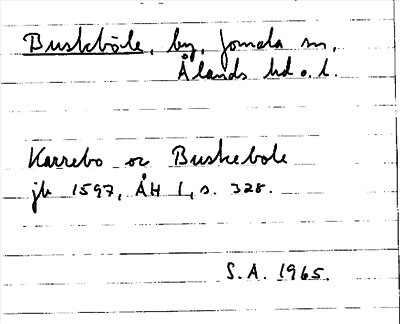 Buskböle, by, Jomala sn,
Ålands hd o. l.
Karrebo oc Buskebole
jb 1597, ÅH 1, s. 328.
S.A. 1965.